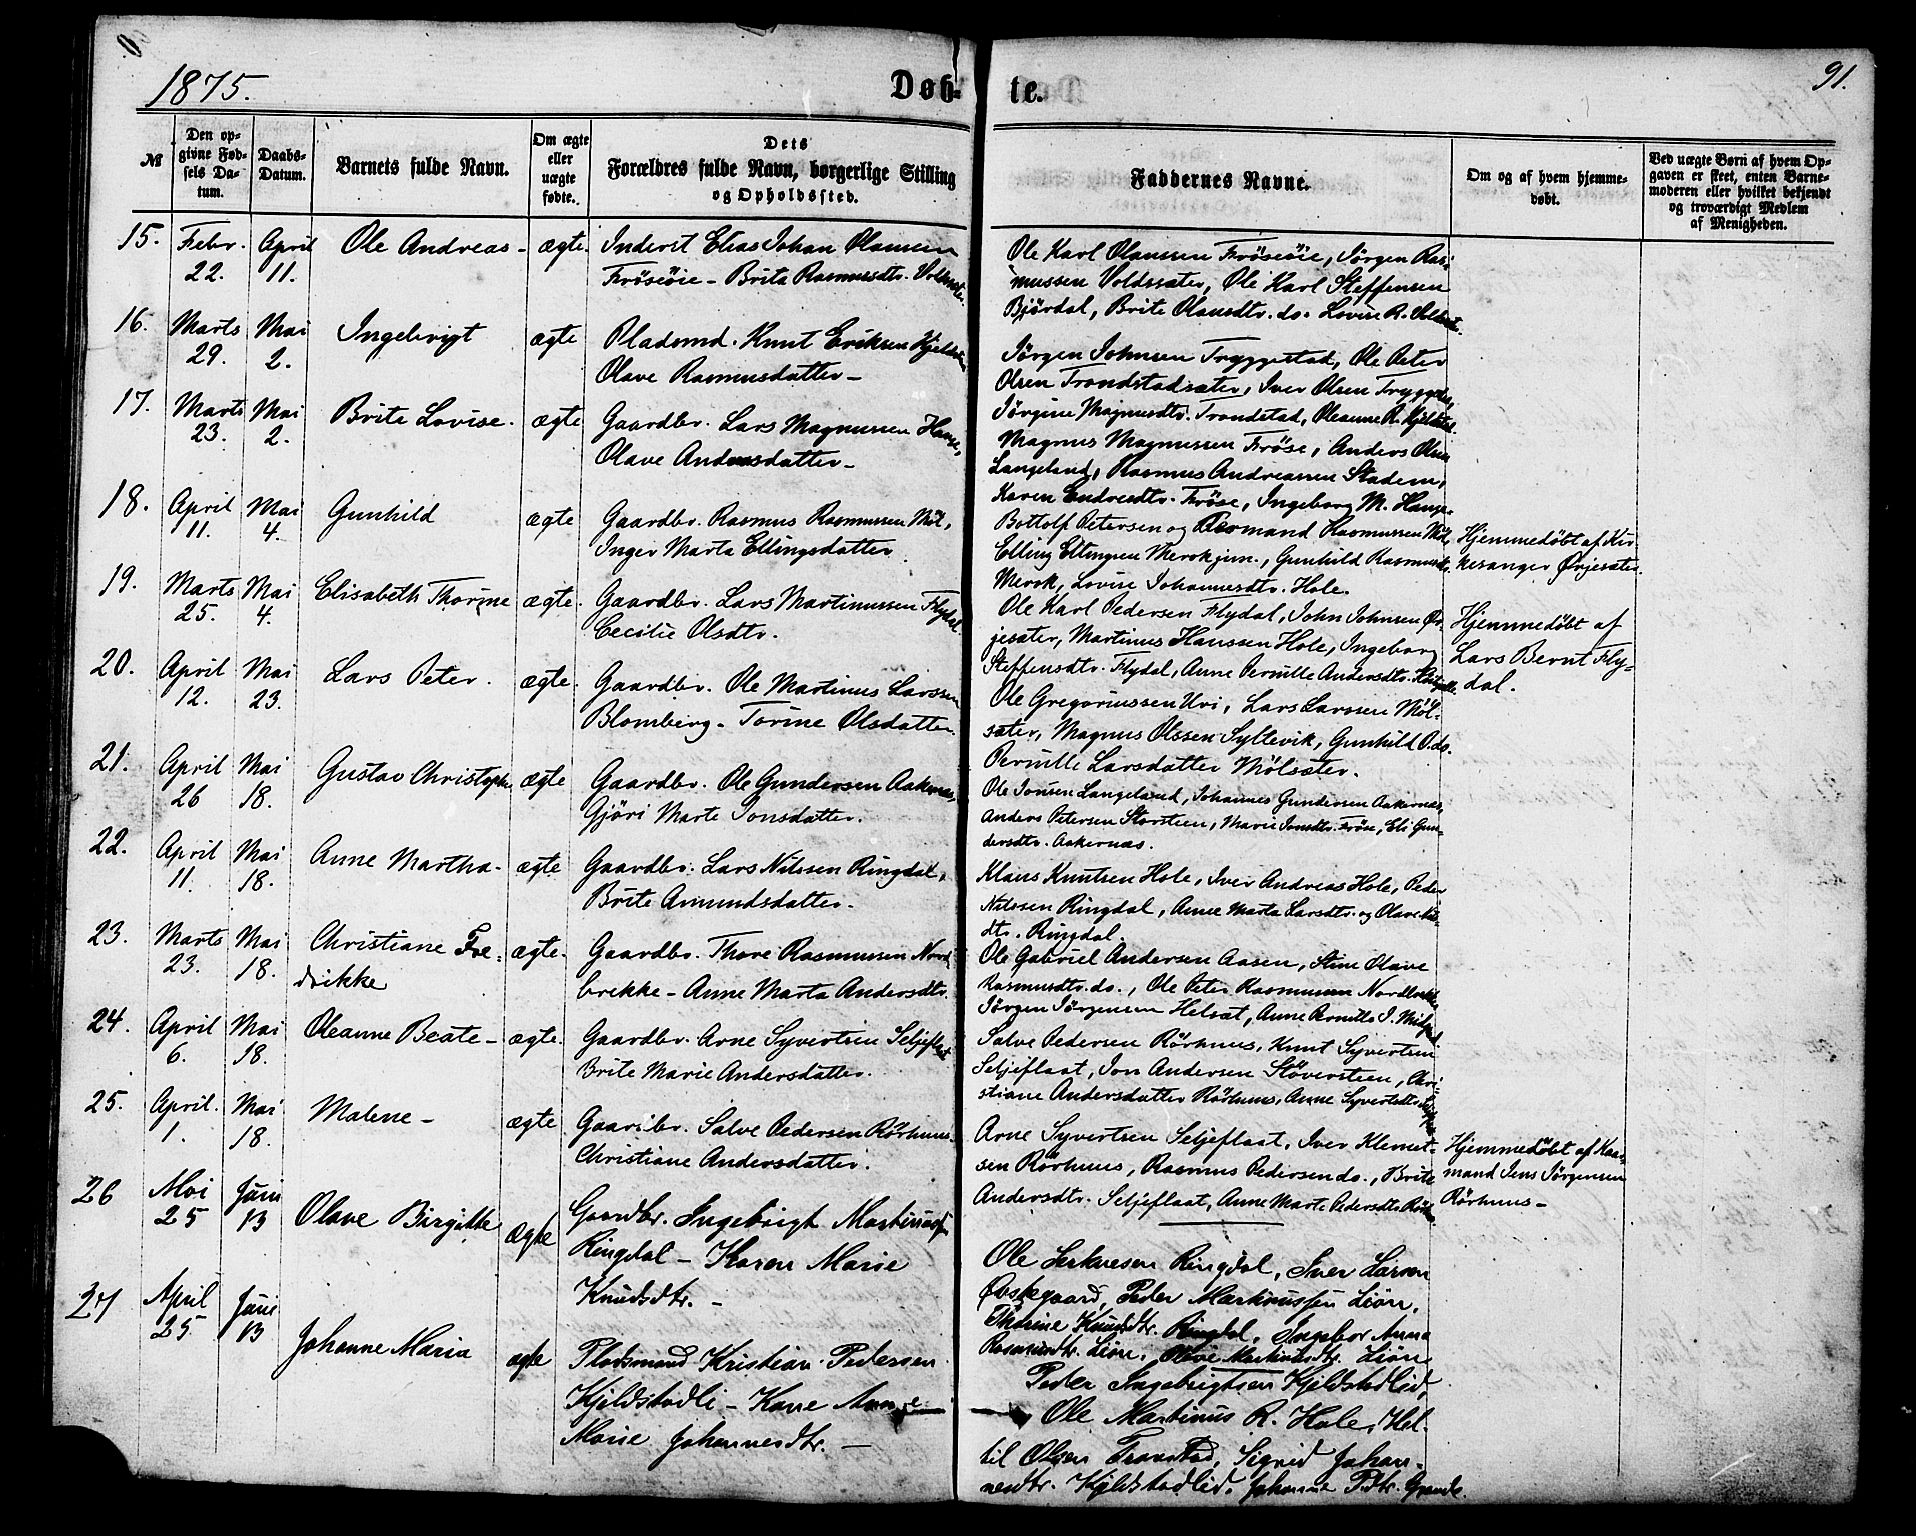 1875.
Døb-
te.
91.
№
Den op-
givne Fød-
sels Da-
tum.
Daabs-
Datum.
Barnets fulde Navn.
Om ægte
eller
uægte
fødte.
Dets
Forældres fulde Navn, borgerlige Stilling
og Opholdssted.
Faddernes Navne.
Om og af hvem hjemme-
døbt.
Ved uægte Børn af hvem Op-
gaven er skeet, enten Barne-
moderen eller hvilket bekjendt
og troværdigt Medlem
af Menigheden.
15. Febr. 22. April 11. Ole Andreas - ægte. Inderst Elias Johan Olausen
Frösöie - Brita Rasmusdtr. Voldsæter.
Ole Karl Olaussen Frösöie, Jörgen Ras-
mussen Voldssæter, Ole Karl Steffensen
Björdal, Brite Olausdtr. do. Lovise R.
16. Marts 29. Mai 2. Ingebrigt ægte Pladsmd. Knut Eriksen
Olave Rasmusdatter -
Jörgen Johnsen Tryggestad, Ole Peter
Olsen Trondstadsæter, Iver Olsen
Jörgine Magnusdtr. Trondstad, Oleanne R.
17. Marts 23. Mai 2. Brite Lovise. ægte Gaardbr. Lars Magnussen Hauge,
Olave Andersdatter -
Magnus Magnussen Fröse, Anders Olsen
Langeland, Rasmus Andreassen Stadem,
Karen Endresdtr. Fröse, Ingeborg M. Hauge.
18. April 11. Mai 4. Gunhild ægte Gaardbr. Rasmus Rasmussen Möl,
Inger Marta Ellingsdatter
Bottolf Petersen og Rasmussen Möl,
Elling Ellingsen Gunhild Rasmusdtr.
Merok, Lovise Johannesdtr. Hole.
Hjemmedöbt af Kir-
kesanger Ørjesæter.
19. Marts 25. Mai 4. Elisabeth Thorine ægte. Gaardbr. Lars Martinussen Flydal.
Cecilie Olsdtr.
Ole Karl Pedersen Flydal, John Johnsen Ør-
jesæter, Martinus Hanssen Hole, Ingeborg
Steffensdtr. Flydal, Anne Pernille Andersdtr.
Hjemmedöbt af
Lars Bernt Fly-
dal.
20. April 12. Mai 23. Lars Peter. ægte. Gaardbr. Ole Martinus Larssen
Blomberg - Torine Olsdatter.
Ole Gregoriussen Uri, Lars Larssen Möl-
sæter, Magnus Olssen Syltevik, Gunhild O. do.
Pernille Larsdatter Mölsæter.
21. April 26 Mai 18. Gustav Christoph. ægte Gaardbr. Ole Gundersen Aakernæs,
Gjöri Marte Jonsdatter.
Ole Jonsen Langeland, Johannes Gundersen Aakernæs,
Anders Petersen Storsteen, Marie Jonsdtr. Fröse, Eli Gun-
dersdtr. Aakernæs.
22. April 11. Mai 18. Anne Martha - ægte Gaardbr. Lars Nilssen Ringdal,
Brite Amundsdatter.
Klaus Knutsen Hole, Iver Andreas Hole, Peder
Nilssen Ringdal, Anne Marta Larsdtr. og Olave
dtr. Ringdal.
23. Marts 23. Mai 18. Christiane Fre-
drikke
ægte. Gaardbr. Thore Rasmussen Nord-
brekke - Anne Marta Andersdtr.
Ole Gabriel Andersen Aasen, Stine Olave
Rasmusdtr. do., Ole Peter Rasmussen Nordbrekke,
Jörgen Jörgensen Helset, Anne Pernille J.
24. April 6. Mai 18. Oleanne Beate - ægte. Gaardbr. Arne Syvertsen Seljeflaat
Brite Marie Andersdatter.
Salve Pedersen Rörhuus, Knut Syvertsen
Seljeflaat, Jon Andersen Stöversteen, Chri-
stiane Andersdatter Rörhuus, Anne Syvertsdtr.
25. April. 1. Mai 18. Malene - ægte Gaardbr. Salve Pedersen Rörhuus.
Christiane Andersdatter.
Arne Syvertsen Seljeflaat, Iver Klemet-
sen Rörhuus, Rasmus Pedersen do., Brite
Andersdtr. Seljeflaat, Anne Marte Pedersdtr.
Hjemmedöbt af Kaar-
mand Jens Jörgensen
Rörhuus -
26 Mai 25 Juni 13 Olave Birgitte ægte Gaardbr. Ingebrigt Martinuss.
Ringdal - Karen Marie
Knudsdtr. -
Ole Ringdal, Iver Larsen
Peder Martinussen Liön,
Thorine Knudsdtr. Ringdal, Ingebor Anna
Rasmusdtr. Liön, Olave Martinusdtr. Liön
27 April 25 Juni 13 Johanne Maria ægte Pladsmand Kristian Pedersen
Kjeldstadli - Anne
Marie Johannesdtr. -
Peder Ingebrigtsen Kjeldstadlid,
Ole Martinus R. Hole, Ket-
til Olsen Sigrid Johan-
nesdtr. Kjeldstadlid, Johanne Pdtr. Grande.